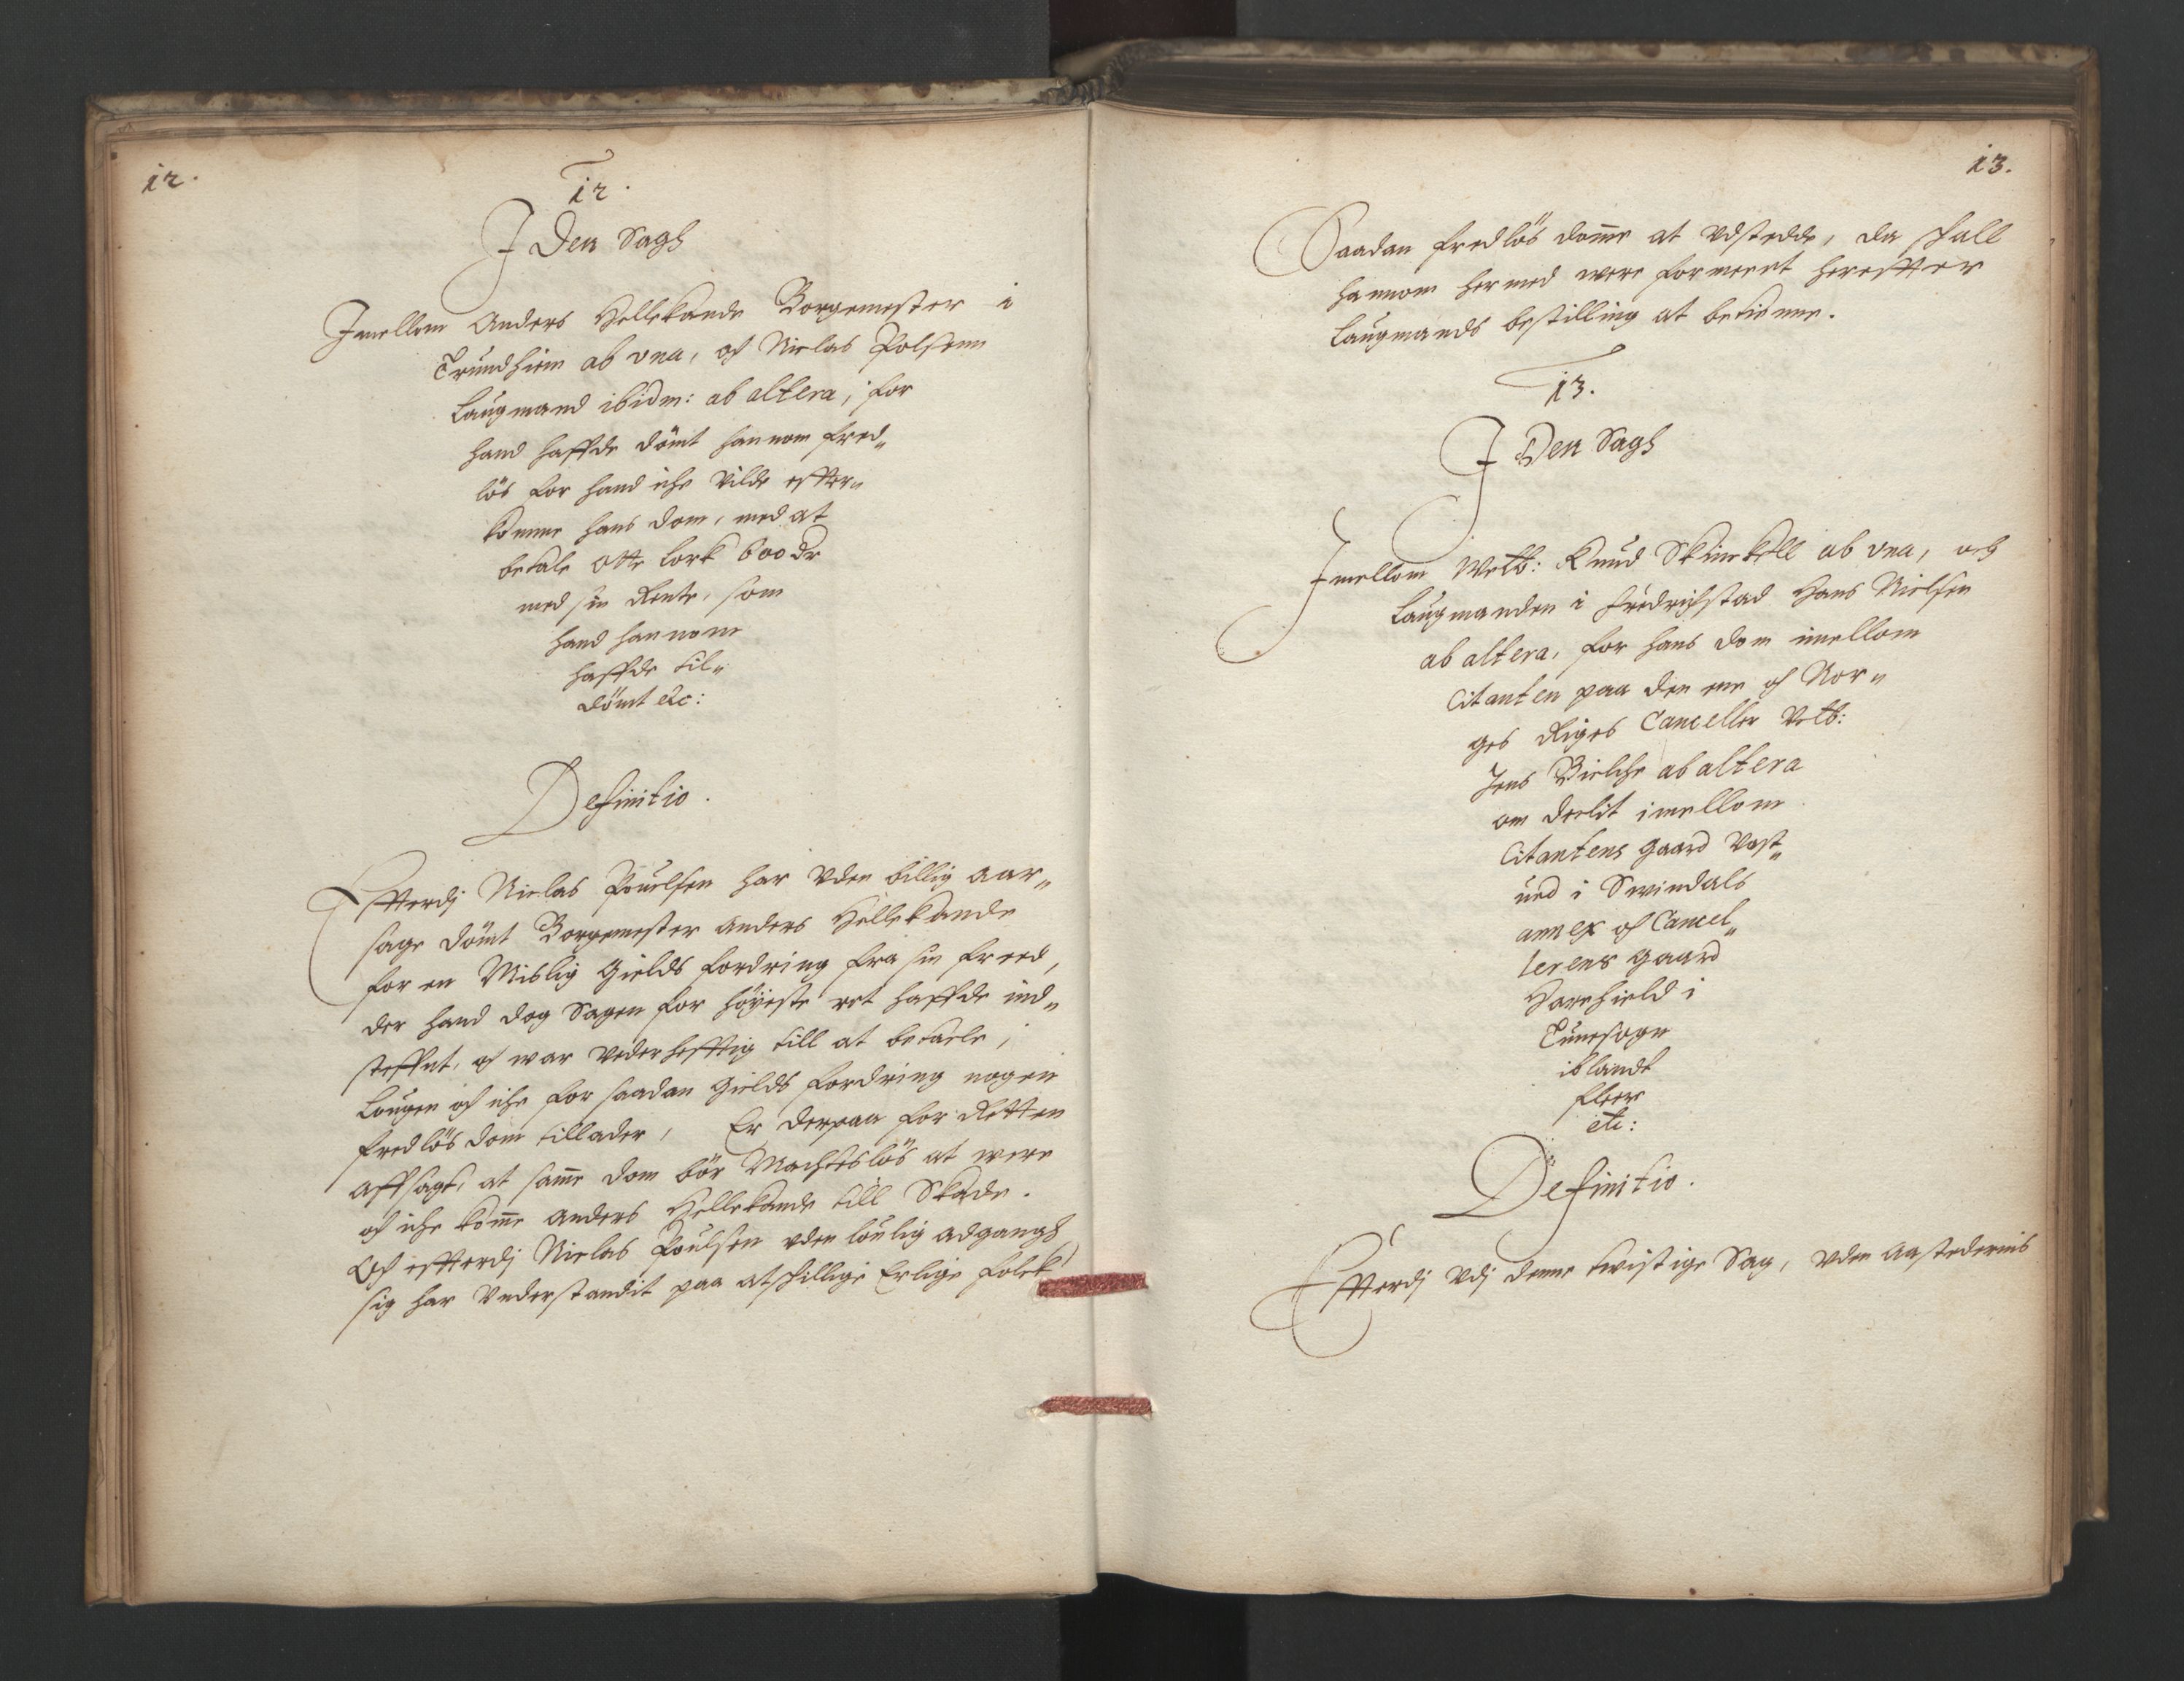 12.
12.
I Den Sagh
Imellom Anders Hellekande Borgemester i
Trundhiem ab una, och Nielas Polsenn
Laugmand ibidm: ab altera, for
hand haffde dömt hannom fred„
lös for hand iche vilde effter„
komme hans dom, med at
betale Otte Lork 600 dr
med sin Rente, som
hand hannom
haffde til„
dömt etc:
Definitio.
Effterdj Nielas Pouelsen har uden billig aar„
sage dömt Borgemester Anders Hellekande
for en Mislig Gields fordring fra sin freed,
der hand dog Sagen for höyeste ret haffde ind„
steffnt, och war vederhefftig till at betaele,
Lougen och iche for saadan Gields fordring nogen
fredlös dom tillader, Er derpaa for Retten
affsagt, at samme dom bör Machteslös at were
och iche komme Anders Hellekande till Skade.
Och effterdj Nielas Poulsen uden loulig adgangh
sig har Understandit paa atschillige Erlige folck
13.
Saadan fredlös domme at udstedde, da schall
hannom hermed were formeent hereffter
Laugmands bestilling at betienne.
13.
I Den Sagh
Imellom Welb: Knud Skinkell ab una, och
Laugmanden i Fredrichstad Hans Nielsen
ab altera, for hans dom imellom
Citanten paa den ene och Nor„
ges Riges Canceller Velb:
Jens Bielche ab altera
om deelit imellom
Citantens gaard Vest„
ued i Swindals
annex och Cancel„
lerens gaard
Harehield i
Tunesogn
iblandt
fleer
etc:
Definitio.
Effterdj Udj denne twistige Sag, uden Aastedernis